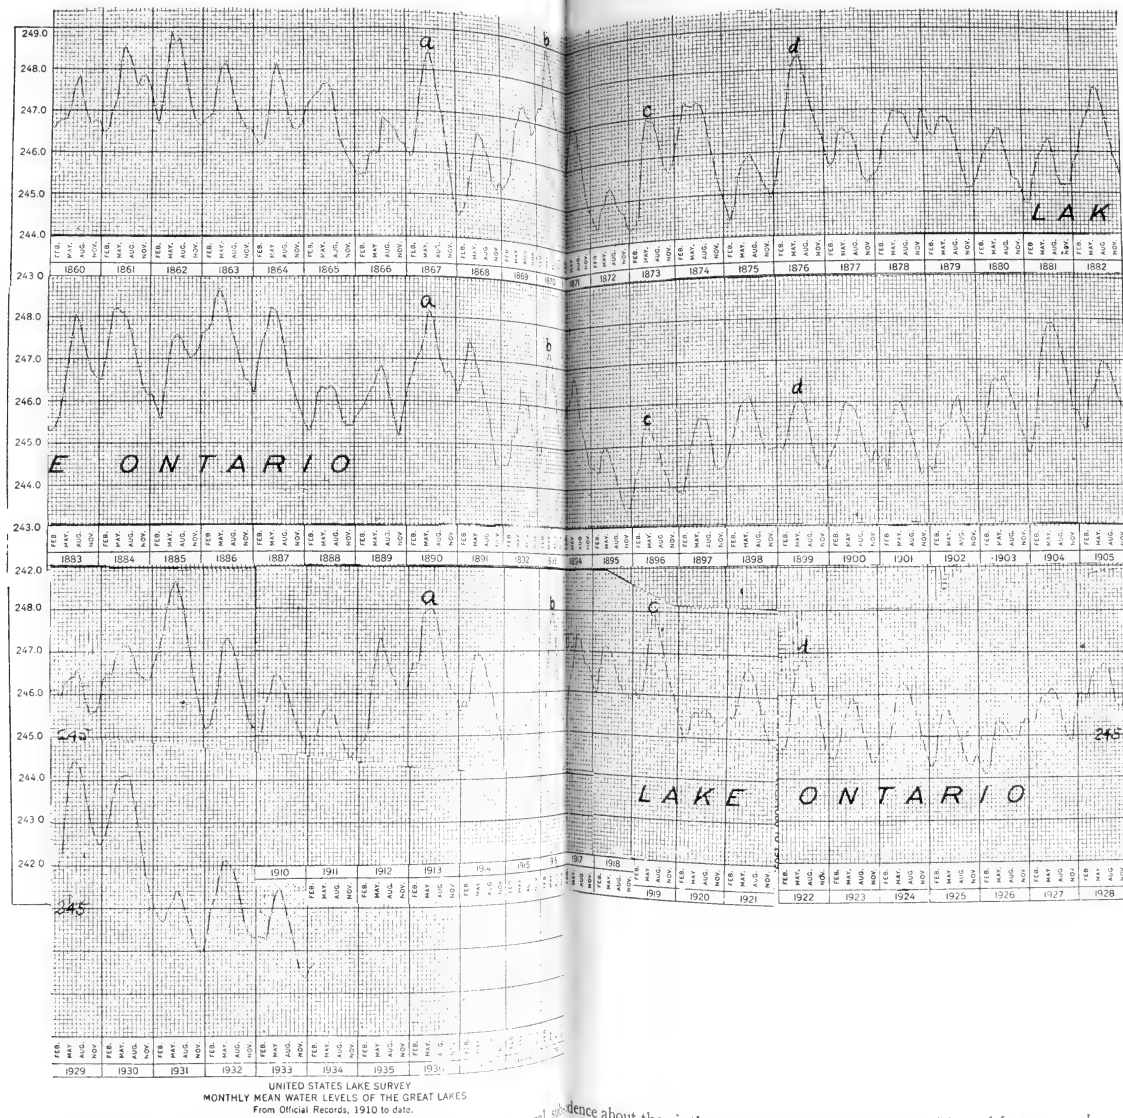 249.0
248.0
247.0
246.0
245.0
244.0
a b c d
LAK
FEB. MAY. AUG. NOV.
1860 1861 1862 1863 1864 1865 1866 1867 1868 1869 1870 1871 1872 1873 1874 1875 1876 1877 1878 1879 1880 1881 1882
243.0
248.0
247.0
246.0
245.0
244.0
a b c d
E ONTARIO
243.0
FEB. MAY. AUG. NOV.
1883 1884 1885 1886 1887 1888 1889 1890 1891 1893 1894 1895 1896 1897 1898 1899 1900 1901 1902 1903 1904 1905
242.0
248.0
247.0
246.0
245.0
244.0
243.0
242.0
a b c d
245 245
LAKE ONTARIO
1910 1911 1912 1913 1915 1917 1918
FEB. MAY. AUG. NOV.
1919 1920 1921 1922 1923 1924 1925 1926 1927 1928
245
FEB. MAY AUG. NOV.
1929 1930 1931 1932 1933 1934 1935 1936
UNITED STATES LAKE SURVEY
MONTHLY MEAN WATER LEVELS OF THE GREAT LAKES
From Official Records, 1910 to date.